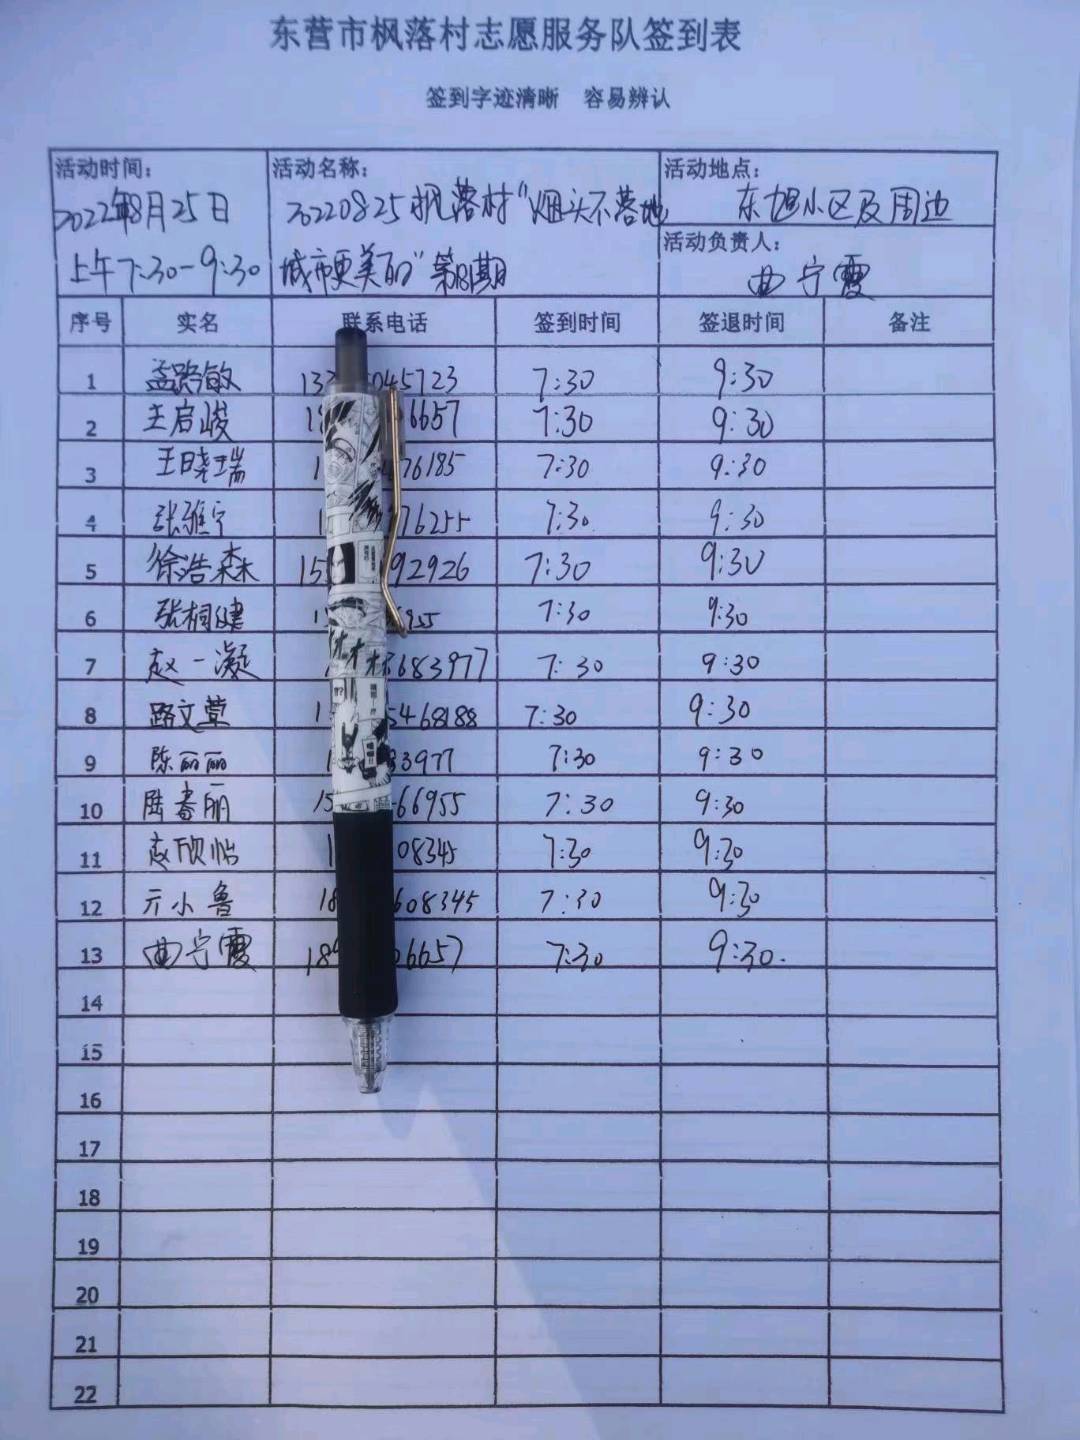 东营市枫落村志愿服务队签到表
签到字迹清晰 容易辨认
活动时间： 活动名称： 活动地点：
2022年8月25日 20220825枫落村“烟头不落地 东旭小区及周边
活动负责人：
上午7:30-9:30 城市更美的” 期 曲宁霞
序号 实名 联系电话 签到时间 签退时间 备注
1 孟路敏 045723 7:30 9:30
2 王启峻 6657 7:30 9:30
3 王晓瑞 76185 7:30 9:30
4 张雅宁 76255 7:30 9:30
5 徐浩森 15 92926 7:30 9:30
6 张桐健 955 7:30 9:30
7 赵一凝 683977 7:30 9:30
8 路文萱 5468188 7:30 9:30
9 陈丽丽 33977 7:30 9:30
10 春丽 15 66955 7:30 9:30
11 赵欣怡 08345 7:30 9:30
12 亓小鲁 18 608345 7:30 9:30
13 曲宁霞 18 06657 7:30 9:30.
14
15
16
17
18
19
20
21
22